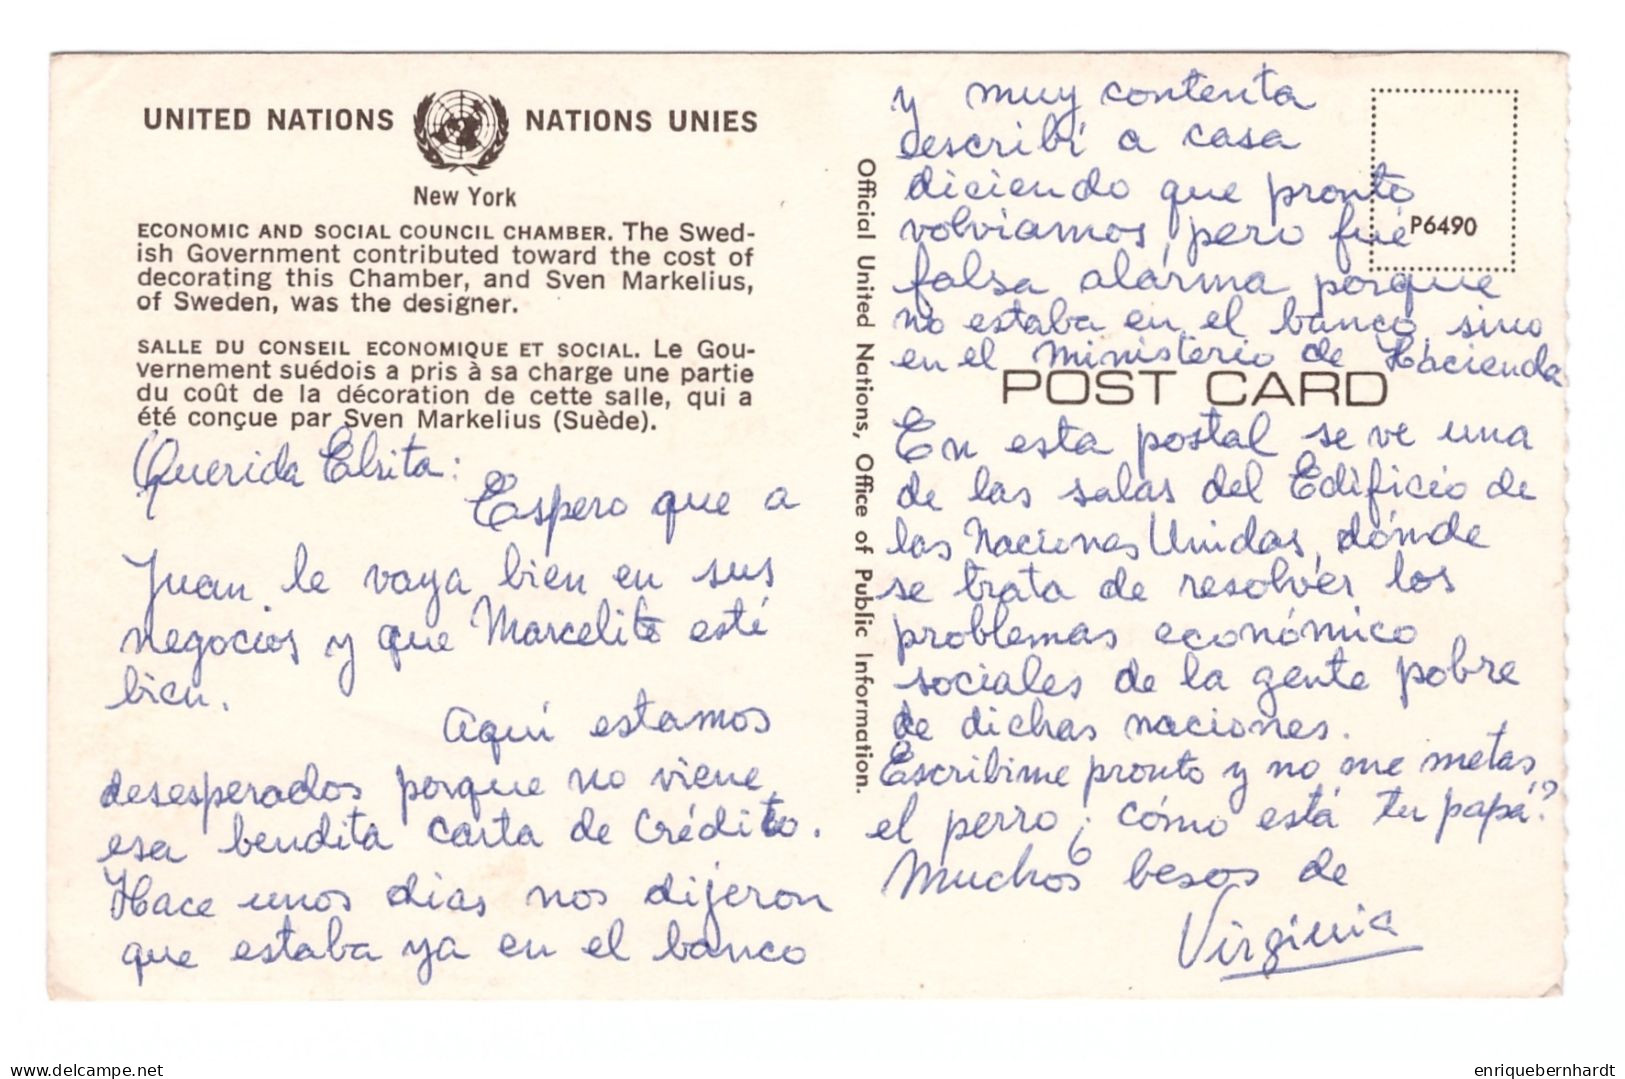 UNITED NATIONS NATIONS UNIES
New York
ECONOMIC AND SOCIAL COUNCIL CHAMBER. The Swed-
ish Government contributed toward the cost of
decorating this Chamber, and Sven Markelius,
of Sweden, was the designer.
SALLE DU CONSEIL ECONOMIQUE ET SOCIAL. Le Gou-
vernement suédois a pris à sa charge une partie
du coût de la décoration de cette salle, qui a
été conçue par Sven Markelius (Suède).
Querida Elsita:
Espero que a
Juan le vaya bien en sus
negocios y que Marcelito esté
bien.
Aquí estamos
desesperados porque no viene
esa bendita carta de crédito.
Hace unos dias nos dijeron
que estaba ya en el banco
Official United Nations, Office of Public Information.
y muy contenta
describí a casa
diciendo que pronto
volviamos, pero fué
falsa alárma porque
no estaba en el banco, sino
en el Ministerio de Hacienda
P6490
POST CARD
En esta postal se ve una
de las salas del Edificio de
las Naciones Unidas, dónde
se trata de resolvér los
problemas económico
sociales de la gente pobre
de dichas naciones.
Escribime pronto y no me metas
el perro ¿ cómo está tu papá?
Muchos besos de
Virginia
enriquebernhardt